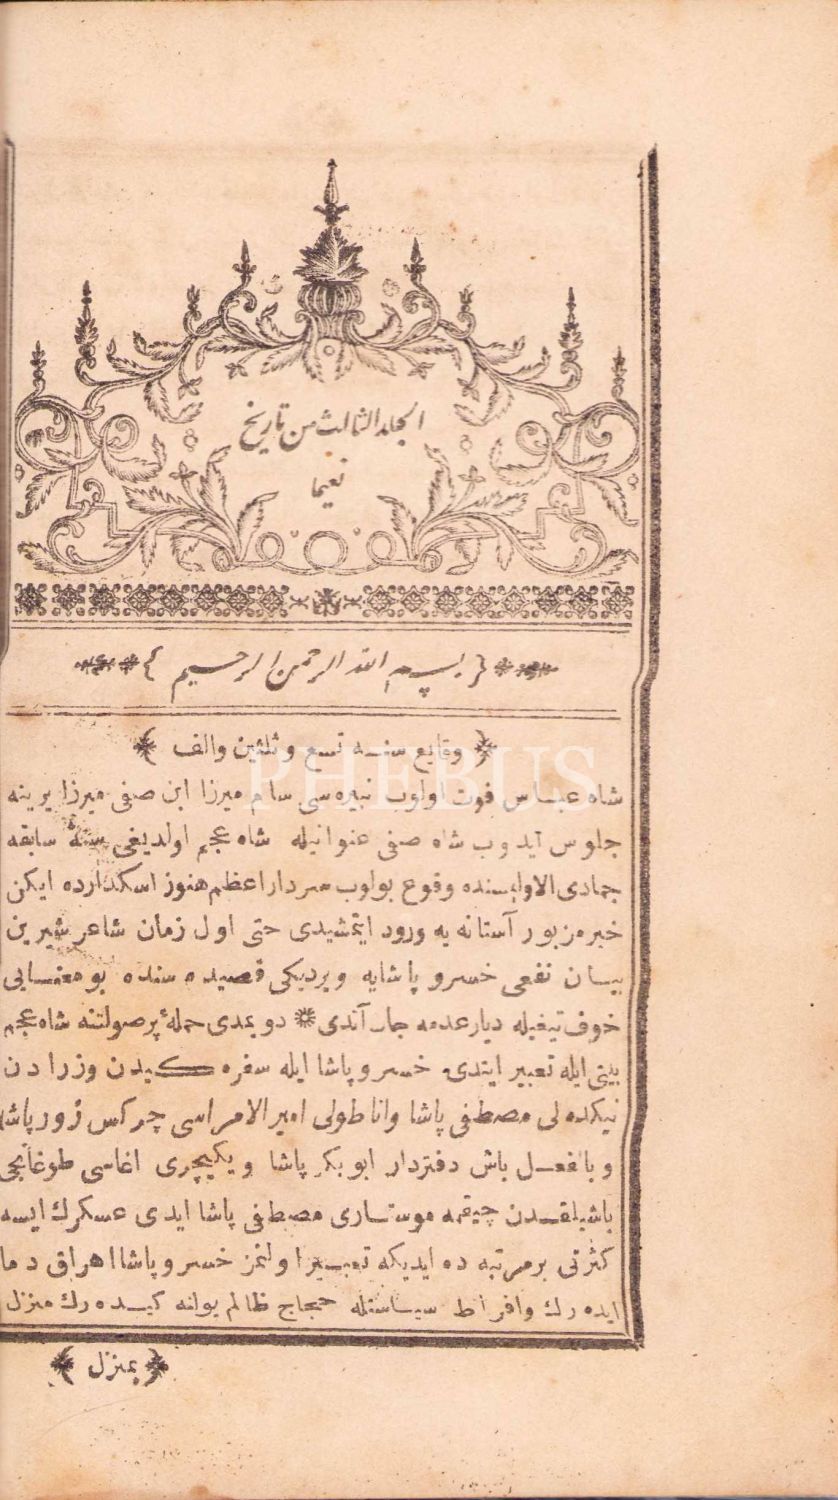 الجلد الثالث من تاريخ
نعيما
بسم الله الرحمن الرحيم
﴿ وقايع سنه تسع وثلثين والف ﴾
PHEBUS
شاه عباس فوت اولوب نبيره سى سام ميرزا ابن صفى ميرزا يرينه
جلوس ايدوب شاه صفى عنوانيله شاه عجم اولديغى سنهٔ سابقه
جمادى الاولاسنده وقوع بولوب سردار اعظم هنوز اسكدارده ايكن
خبر مزبور آستانه يه ورود ايتمشيدى حتى اول زمان شاعر شيرين
بيان نفعى خسرو پاشايه ويرديكى قصيده سنده بو معنايى
خوف تيغيله ديار عدمه جان آتدى * دويمدى حملهٔ پرصولتنه شاه عجم
بيتى ايله تعبير ايتدى خسرو پاشا ايله سفره كيدن وزرادن
نيكده لى مصطفى پاشا واناطولى اميرالامراسى چركس زور پاشا
وبالفعل باش دفتردار ابوبكر پاشا ويكيچرى اغاسى طوغانجى
باشيلقدن چيقمه موستارى مصطفى پاشا ايدى عسكرك ايسه
كثرتى بر مرتبه ده ايديكه تعبير اولنمز خسرو پاشا اهراق دما
ايده رك وافراط سياستله حجاج ظالم يولنه كيده رك منزل
﴿ بمنزل ﴾